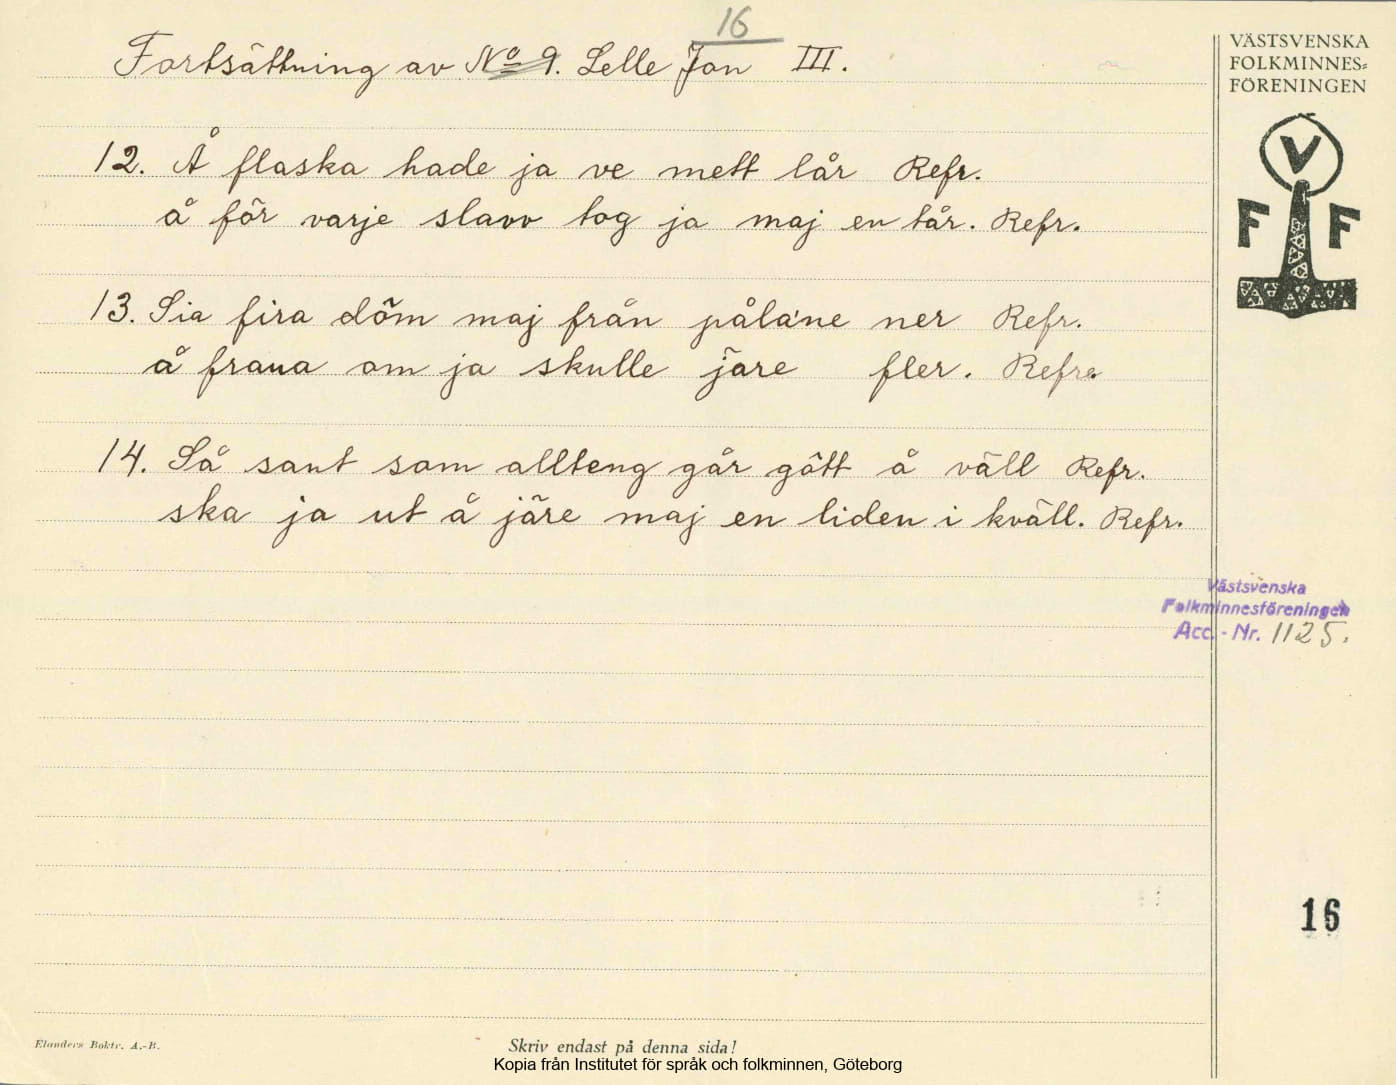 16
Fortsättning av No 9. Lelle Jon III.
VÄSTSVENSKA
FOLKMINNES=
FÖRENINGEN
V
F F
12. Å flaska hade ja ve mett lår Refr.
å för varje slavv tog ja maj en tår. Refr.
13. Sia fira döm maj från påla'ne ner Refr.
å fraua om ja skulle järe fler. Refr.
14. Så sant som allteng går gött å väll Refr.
ska ja ut å järe maj en liden i kväll. Refr.
Västsvenska
Folkminnesföreningen
Acc. - Nr. 1125.
16
Elanders Boktr. A.-B.
Skriv endast på denna sida!
Kopia från Institutet för språk och folkminnen, Göteborg